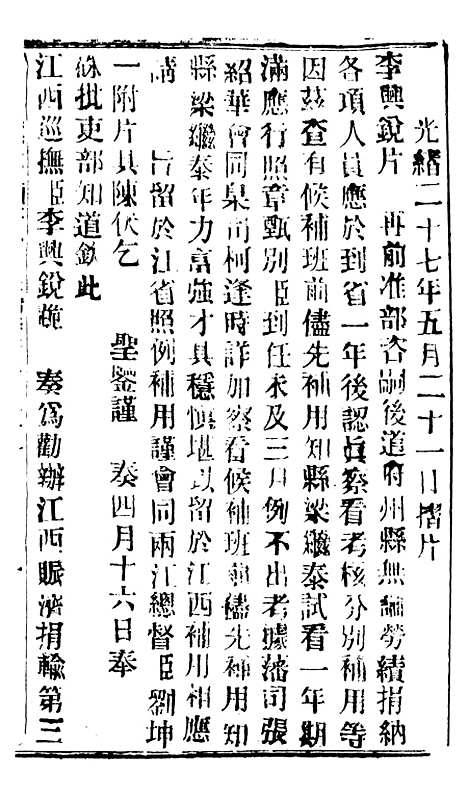 光緒二十七年五月二十一日摺片
李興銳片 再前准部咨嗣後道府州縣無論勞績捐納
各項人員應於到省一年後認眞察看考核分別補用等
因茲查有候補班前儘先補用知縣梁繼泰試看一年期
滿應行照章甄別臣到任未及三月例不出考據藩司張
紹華會同臬司柯逢時詳加察看候補班前儘先補用知
縣梁繼泰年力富強才具穩慎堪以留於江西補用相應
請 旨留於江省照例補用謹會同兩江總督臣劉坤
一附片具陳伏乞 聖鑒謹 奏四月十六日奉
硃批吏部知道欽此
江西巡撫臣李興銳跪 奏爲勸辦江西賑濟捐輸第三